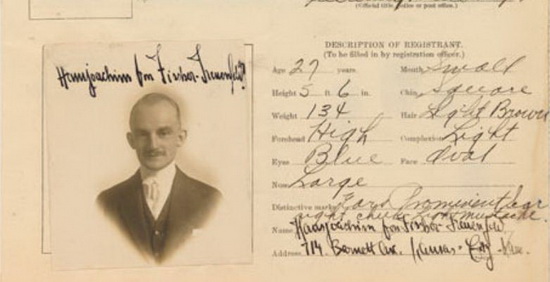 (Official title, police or post office.)
DESCRIPTION OF REGISTRANT.
(To be filled in by registration officer.)
Age 27 years.
Mouth Small
Height 5 ft 6 in.
Chin Square
Weight 134
Hair Light Brown
Forehead High
Complexion Light
Eyes Blue
Face Oval
Nose Large
Distinctive marks Prominent
right cheek light mustache.
Name Hansjoachim von Fischer-Treuenfeld
Address 714 Bennett Ave. Kansas City
Hansjoachim von Fischer-Treuenfeld